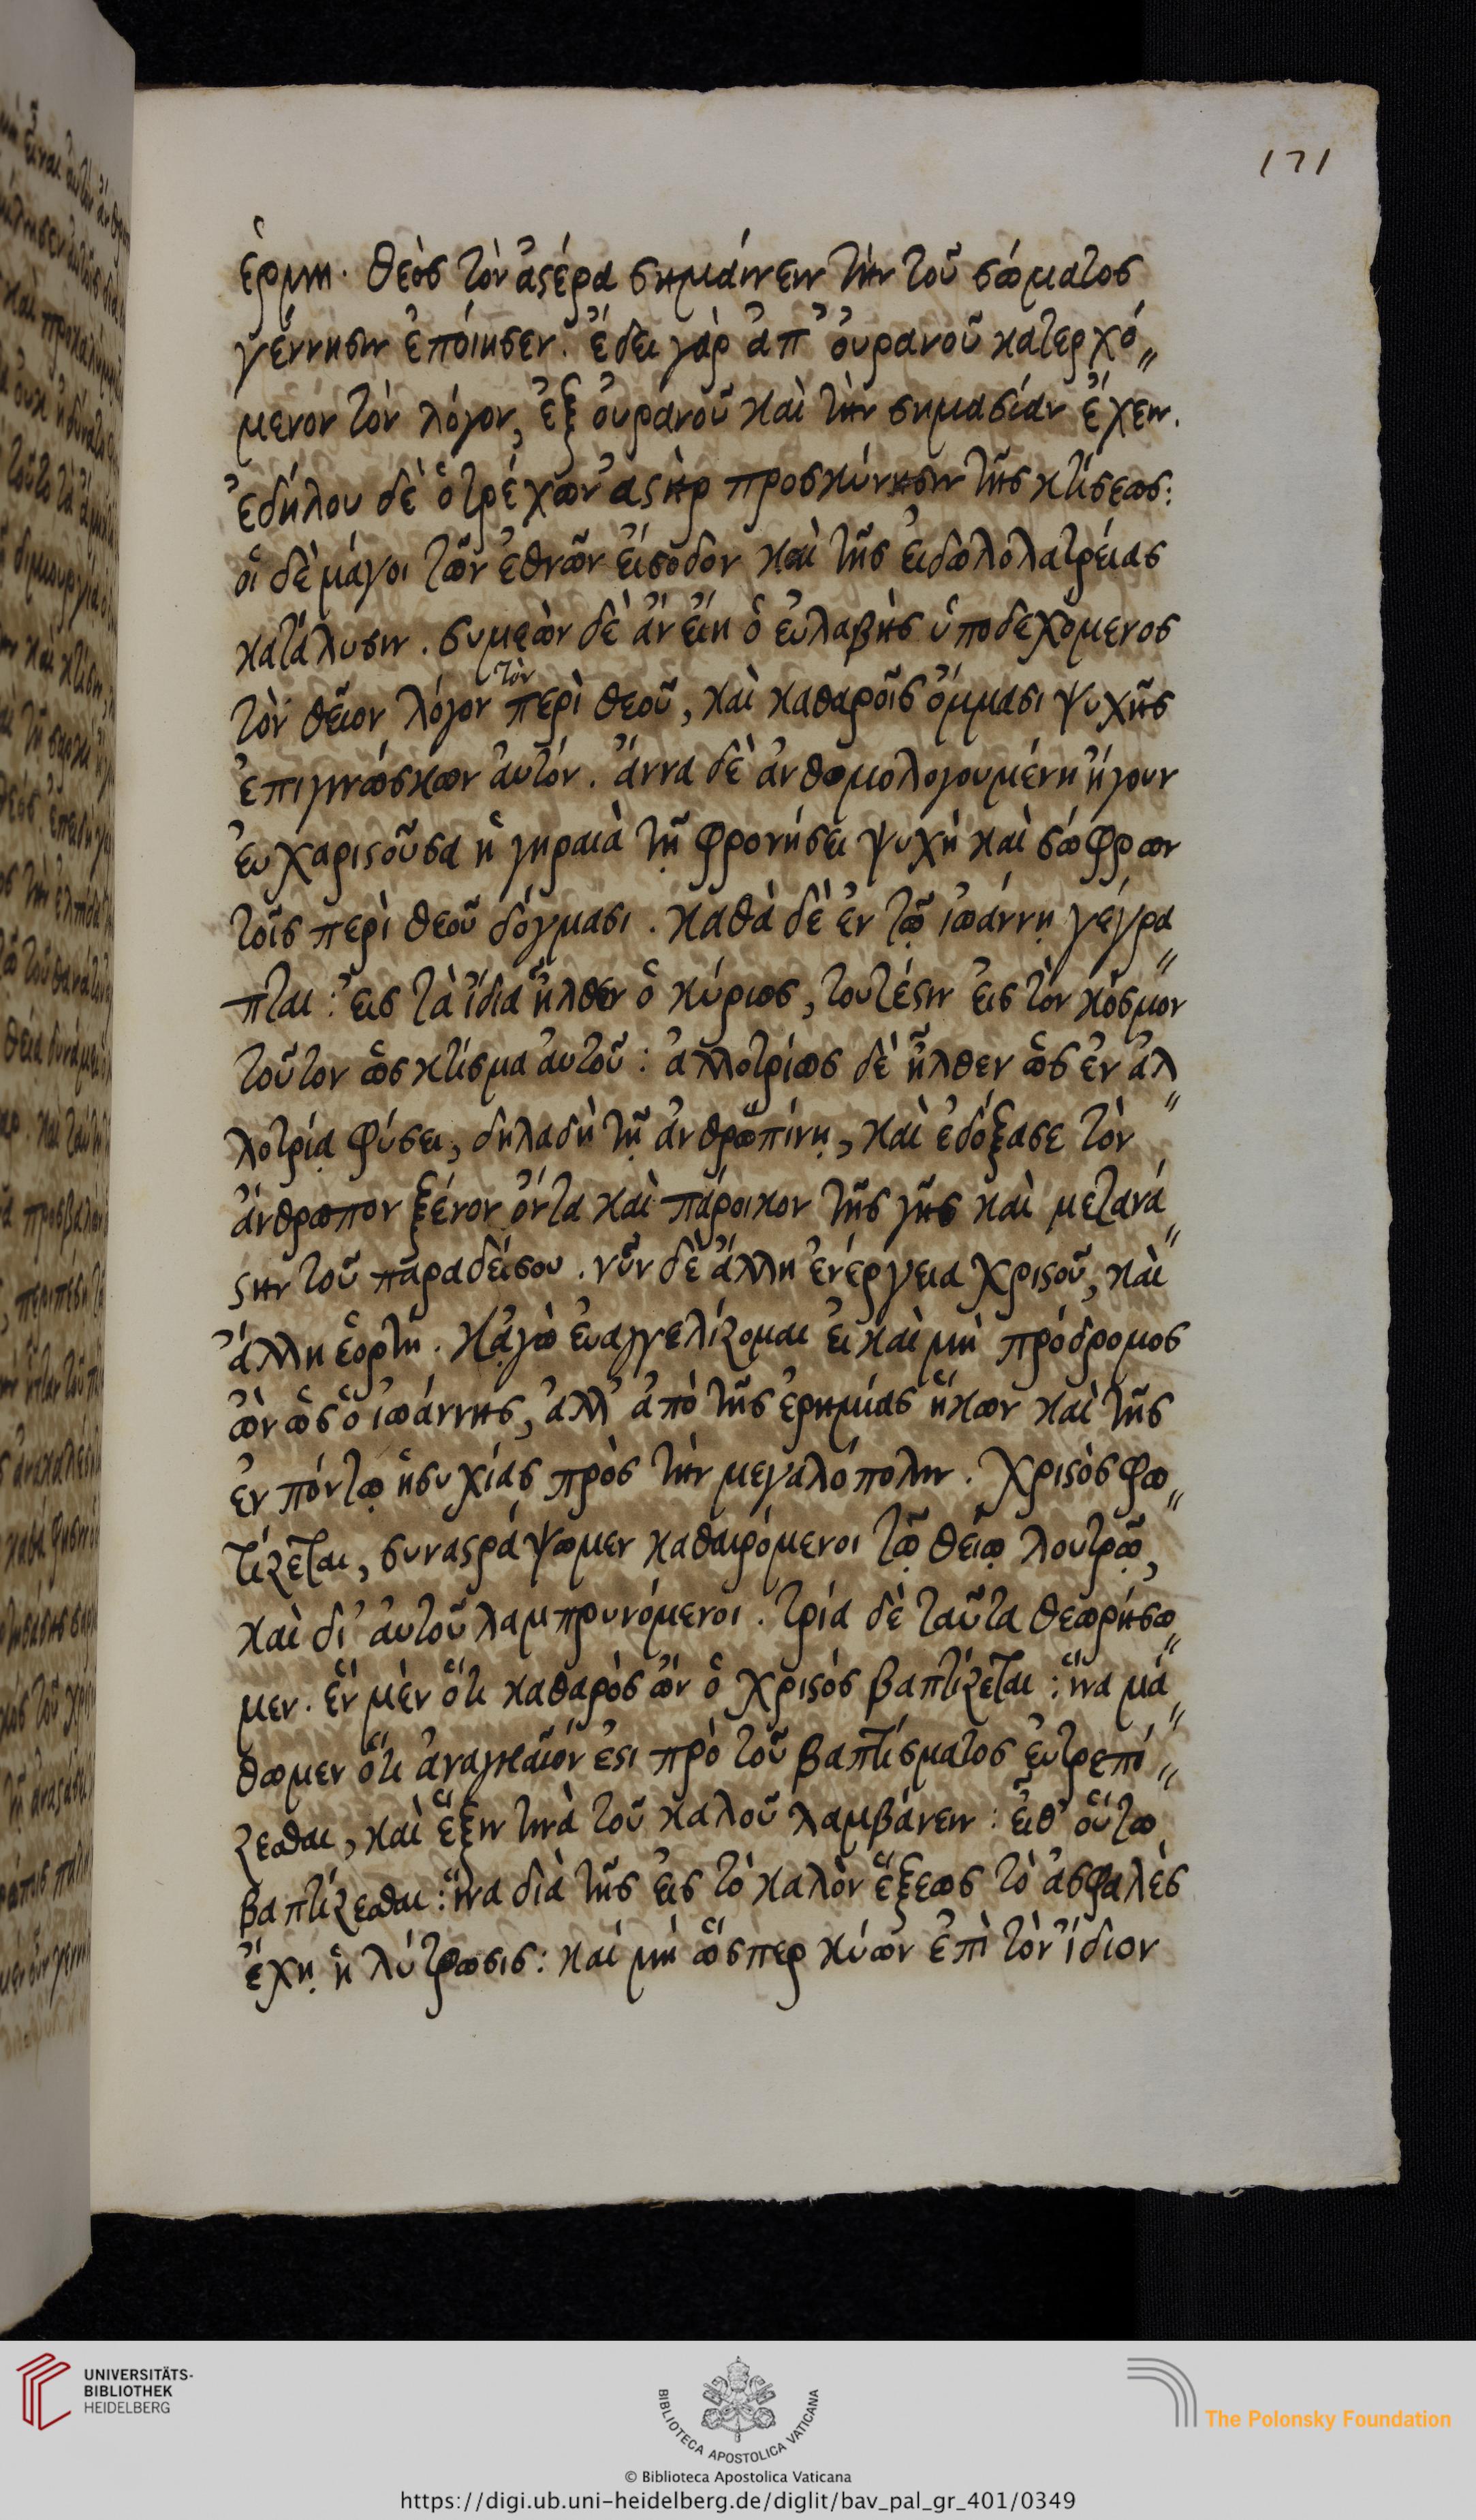 171
ἑρμη. θεὸς τὸν ἀστέρα σημαίνειν τὴν τοῦ σώματος
γέννησιν ἐποίησεν. ἔδει γὰρ ἀπ' οὐρανοῦ κατερχό〃
μενον τὸν λόγον, ἐξ οὐράνοῦ καὶ τὴν σημασίαν ἔχειν.
ἐδήλου δὲ ὁ τρέχων ἀστὴρ προσκύνησιν τῆς κτίσεως:
οἱ δὲ μάγοι τῶν ἐθνῶν εἴσοδον καὶ τῆς εἰδωλολατρείας
κατάλυσιν. συμεὼν δὲ ἂν εἴη ὁ εὐλαβὴς ὑποδεχόμενος
τὸν θεῖον λόγον τὸν περὶ θεοῦ, καὶ καθαροῖς ὄμμασι ψυχῆς
ἐπιγνώσκων αὐτόν. ἄννα δὲ ἀνθωμολογουμένη ἤγουν
εὐχαριστοῦσα ἡ γηραιὰ τῇ φρονήσει ψυχὴ καὶ σώφρων
τοῖς περὶ θεοῦ δόγμασι. καθὰ δὲ ἐν τῷ ἰωάννῃ γέγρα〃
πται: εἰς τὰ ἴδια ἦλθεν ὁ κύριος, τουτέστιν εἰς τὸν κόσμον
τοῦτον ὡς κτίσμα αὐτοῦ: ἀλλοτρίως δὲ ἦλθεν ὡς ἐν ἀλ〃
λοτρίᾳ φύσει, δηλαδὴ τῇ ἀνθρωπίνῃ, καὶ ἐδόξασε τὸν
ἄνθρωπον ξένον ὄντα καὶ πάροικον τῆς γῆς καὶ μετανά〃
στην τοῦ παραδείσου. νῦν δὲ ἄλλη ἐνέργεια χριστοῦ, καὶ
ἄλλη ἑορτή. κἀγὼ εὐαγγελίζομαι εἰ καὶ μὴ πρόδρομος
ὢν ὡς ὁ ἰωάννης, ἀλλ' ἀπὸ τῆς ἐρημίας ἥκων καὶ τῆς
ἐν πόντῳ ἡσυχίας πρὸς τὴν μεγαλόπολιν. χριστὸς φω〃
τίζεται, συναστράψωμεν καθαιρόμενοι τῷ θείῳ λουτρῷ,
καὶ δι' αὐτοῦ λαμπρυνόμενοι. τρία δὲ ταῦτα θεωρήσω〃
μεν. ἓν μὲν ὅτι καθαρὸς ὢν ὁ χριστὸς βαπτίζεται: ἵνα μά〃
θωμεν ὅτι ἀναγκαῖόν ἐστι πρὸ τοῦ βαπτίσματος εὐτρεπί〃
ζεσθαι, καὶ ἕξιν τινὰ τοῦ καλοῦ λαμβάνειν: εἶθ' οὕτω
βαπτίζεσθαι: ἵνα διὰ τῆς εἰς τὸ καλὸν ἕξεως τὸ ἀσφαλὲς
ἔχῃ ἡ λύτρωσις: καὶ μὴ ὥσπερ κύων ἐπὶ τὸν ἴδιον
UNIVERSITÄTS-
BIBLIOTHEK
HEIDELBERG
BIBLIOTECA APOSTOLICA VATICANA
The Polonsky Foundation
© Biblioteca Apostolica Vaticana
https://digi.ub.uni-heidelberg.de/diglit/bav_pal_gr_401/0349